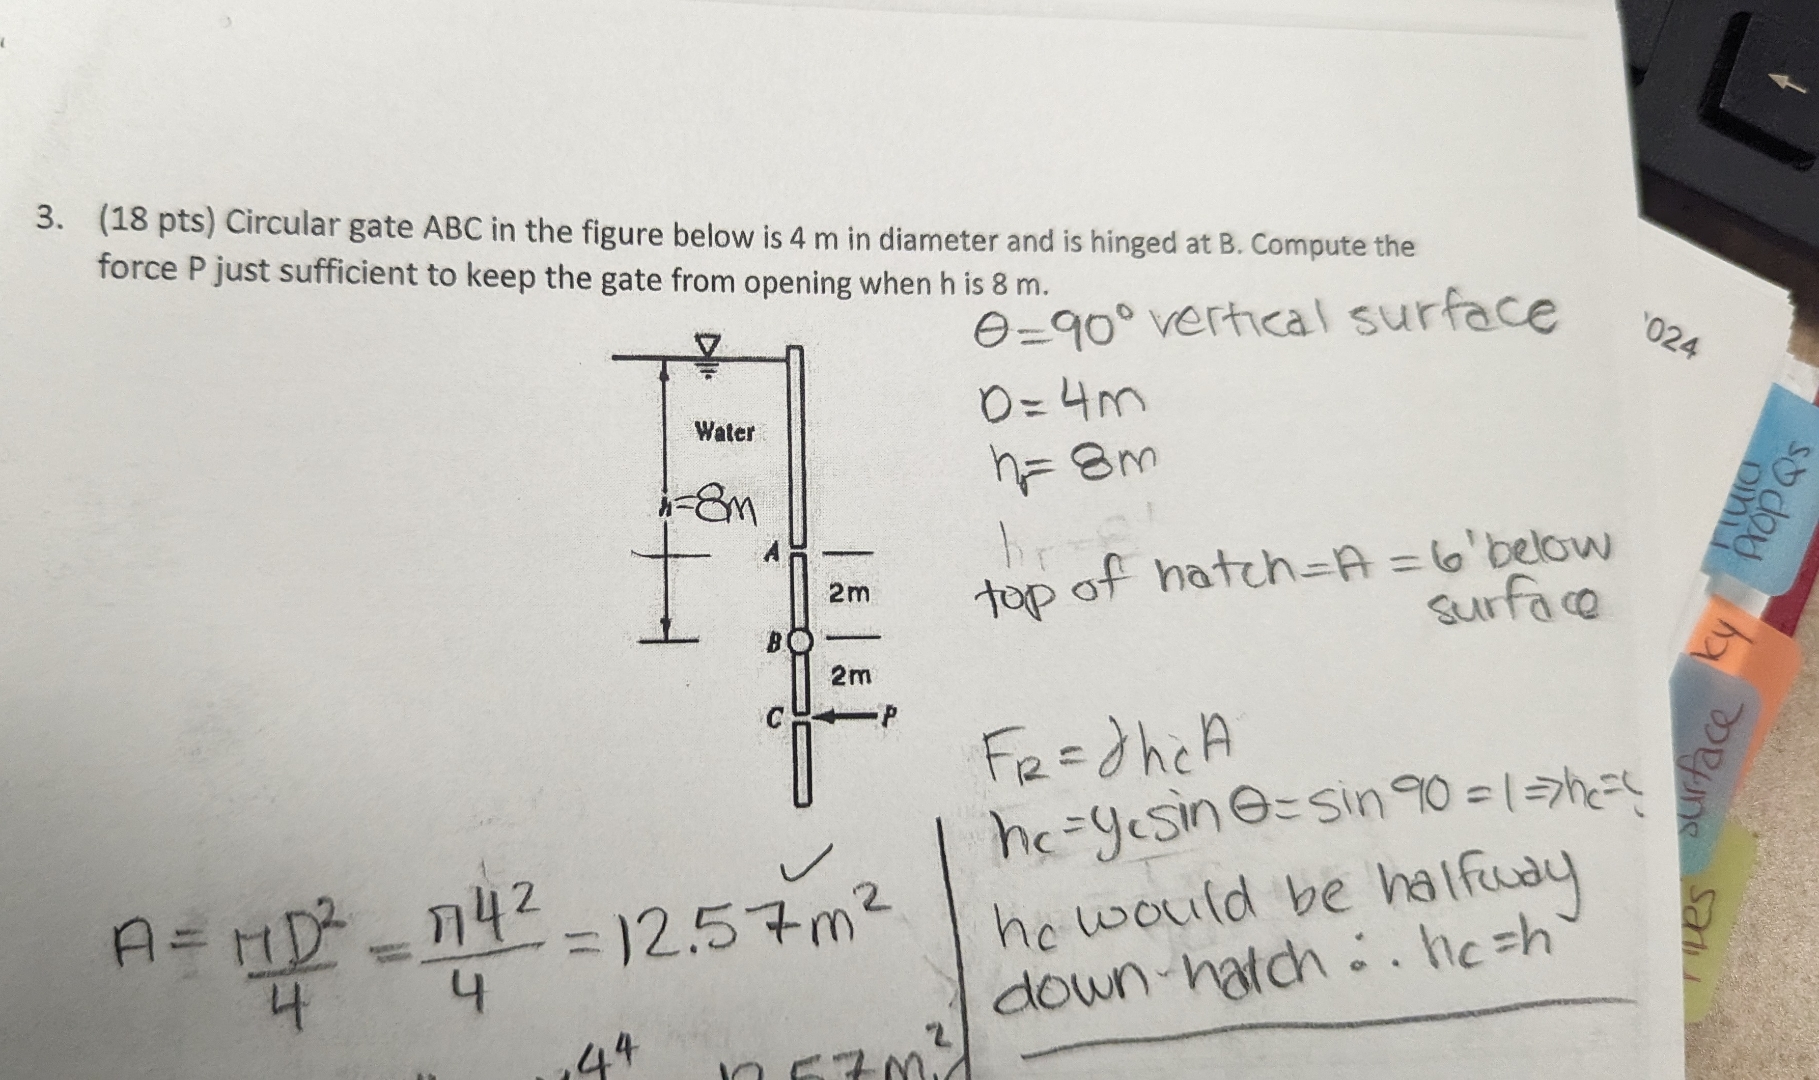 3. (18 pts) Circular gate ABC in the figure below is 4 m in diameter and is hinged at B. Compute the
force P just sufficient to keep the gate from opening when h is 8 m.
θ=90° vertical surface
'024
D=4m
Water
h=8m
h=8m
A
2m
top of hatch=A=6' below
surface
B
2m
C
P
F_R=γh_cA
h_c=y_c sin θ=sin 90=1⇒h_c=
h_c would be halfway
down hatch ∴ h_c=h
A=πD²/4=π4²/4=12.57m² ✓
4⁴
12.57m²
Fluid
Prop Qs
ky
surface